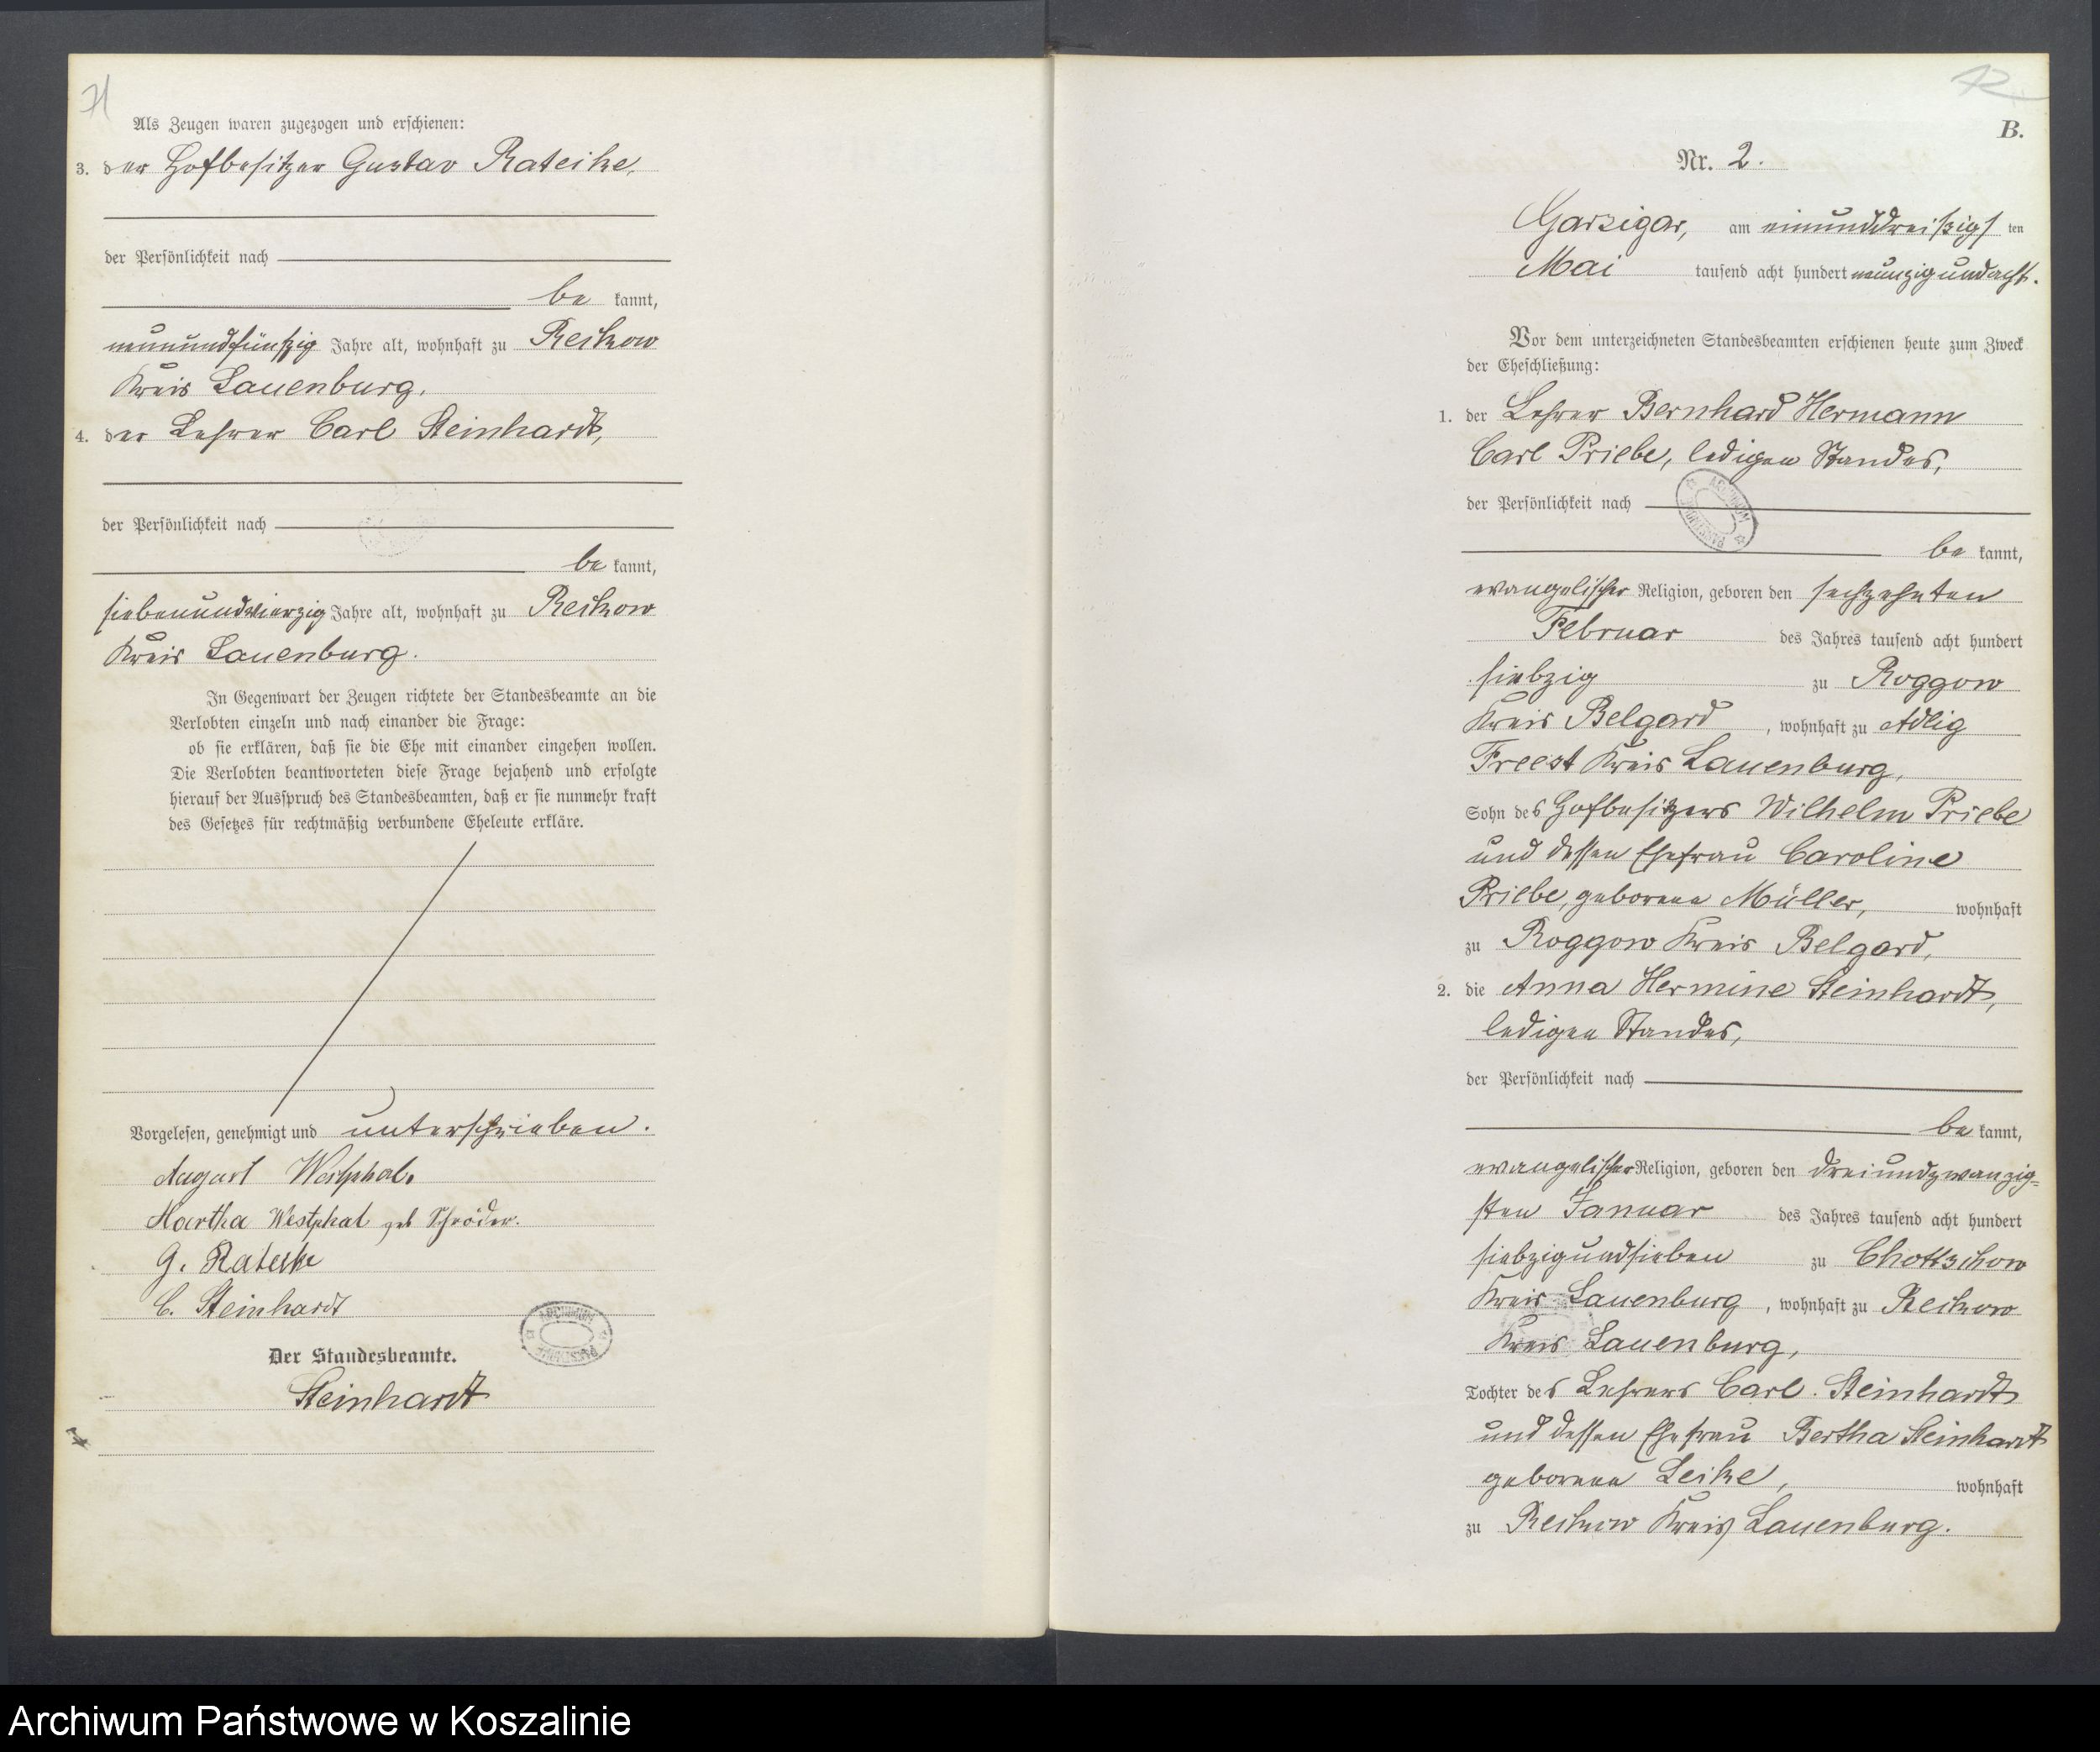 Als Zeugen waren zugezogen und erschienen:
3. der Hofbesitzer Gustav Rateike,
der Persönlichkeit nach
be kannt,
neunundfünfzig Jahre alt, wohnhaft zu Reckow
Kreis Lauenburg.
4. der Lehrer Carl Steinhardt,
der Persönlichkeit nach
be kannt,
siebenundvierzig Jahre alt, wohnhaft zu Reckow
Kreis Lauenburg.
In Gegenwart der Zeugen richtete der Standesbeamte an die
Verlobten einzeln und nach einander die Frage:
ob sie erklären, daß sie die Ehe mit einander eingehen wollen.
Die Verlobten beantworteten diese Frage bejahend und erfolgte
hierauf der Ausspruch des Standesbeamten, daß er sie nunmehr kraft
des Gesetzes für rechtmäßig verbundene Eheleute erkläre.
Vorgelesen, genehmigt und unterschrieben.
August Westphal.
Martha Westphal geb Schröder.
G. Rateike
C. Steinhardt
Der Standesbeamte.
Steinhardt
B.
Nr. 2.
Garzigar, am einunddreißigs ten
Mai tausend acht hundert neunzigundacht.
Vor dem unterzeichneten Standesbeamten erschienen heute zum Zweck
der Eheschließung:
1. der Lehrer Bernhard Hermann
Carl Priebe, ledigen Standes,
der Persönlichkeit nach
be kannt,
evangelischer Religion, geboren den sechzehnten
Februar des Jahres tausend acht hundert
siebzig zu Roggow
Kreis Belgard, wohnhaft zu Adlig
Freest Kreis Lauenburg,
Sohn des Hofbesitzers Wilhelm Priebe
und dessen Ehefrau Caroline
Priebe, geborene Müller, wohnhaft
zu Roggow Kreis Belgard,
2. die Anna Hermine Steinhardt,
ledigen Standes,
der Persönlichkeit nach
be kannt,
evangelischer Religion, geboren den dreiundzwanzig-
sten Januar des Jahres tausend acht hundert
siebzigundsieben zu Chottschow
Kreis Lauenburg, wohnhaft zu Reckow
Kreis Lauenburg,
Tochter des Lehrers Carl Steinhardt
und dessen Ehefrau Bertha Steinhardt
geborene Leike, wohnhaft
zu Reckow Kreis Lauenburg.
Archiwum Państwowe w Koszalinie